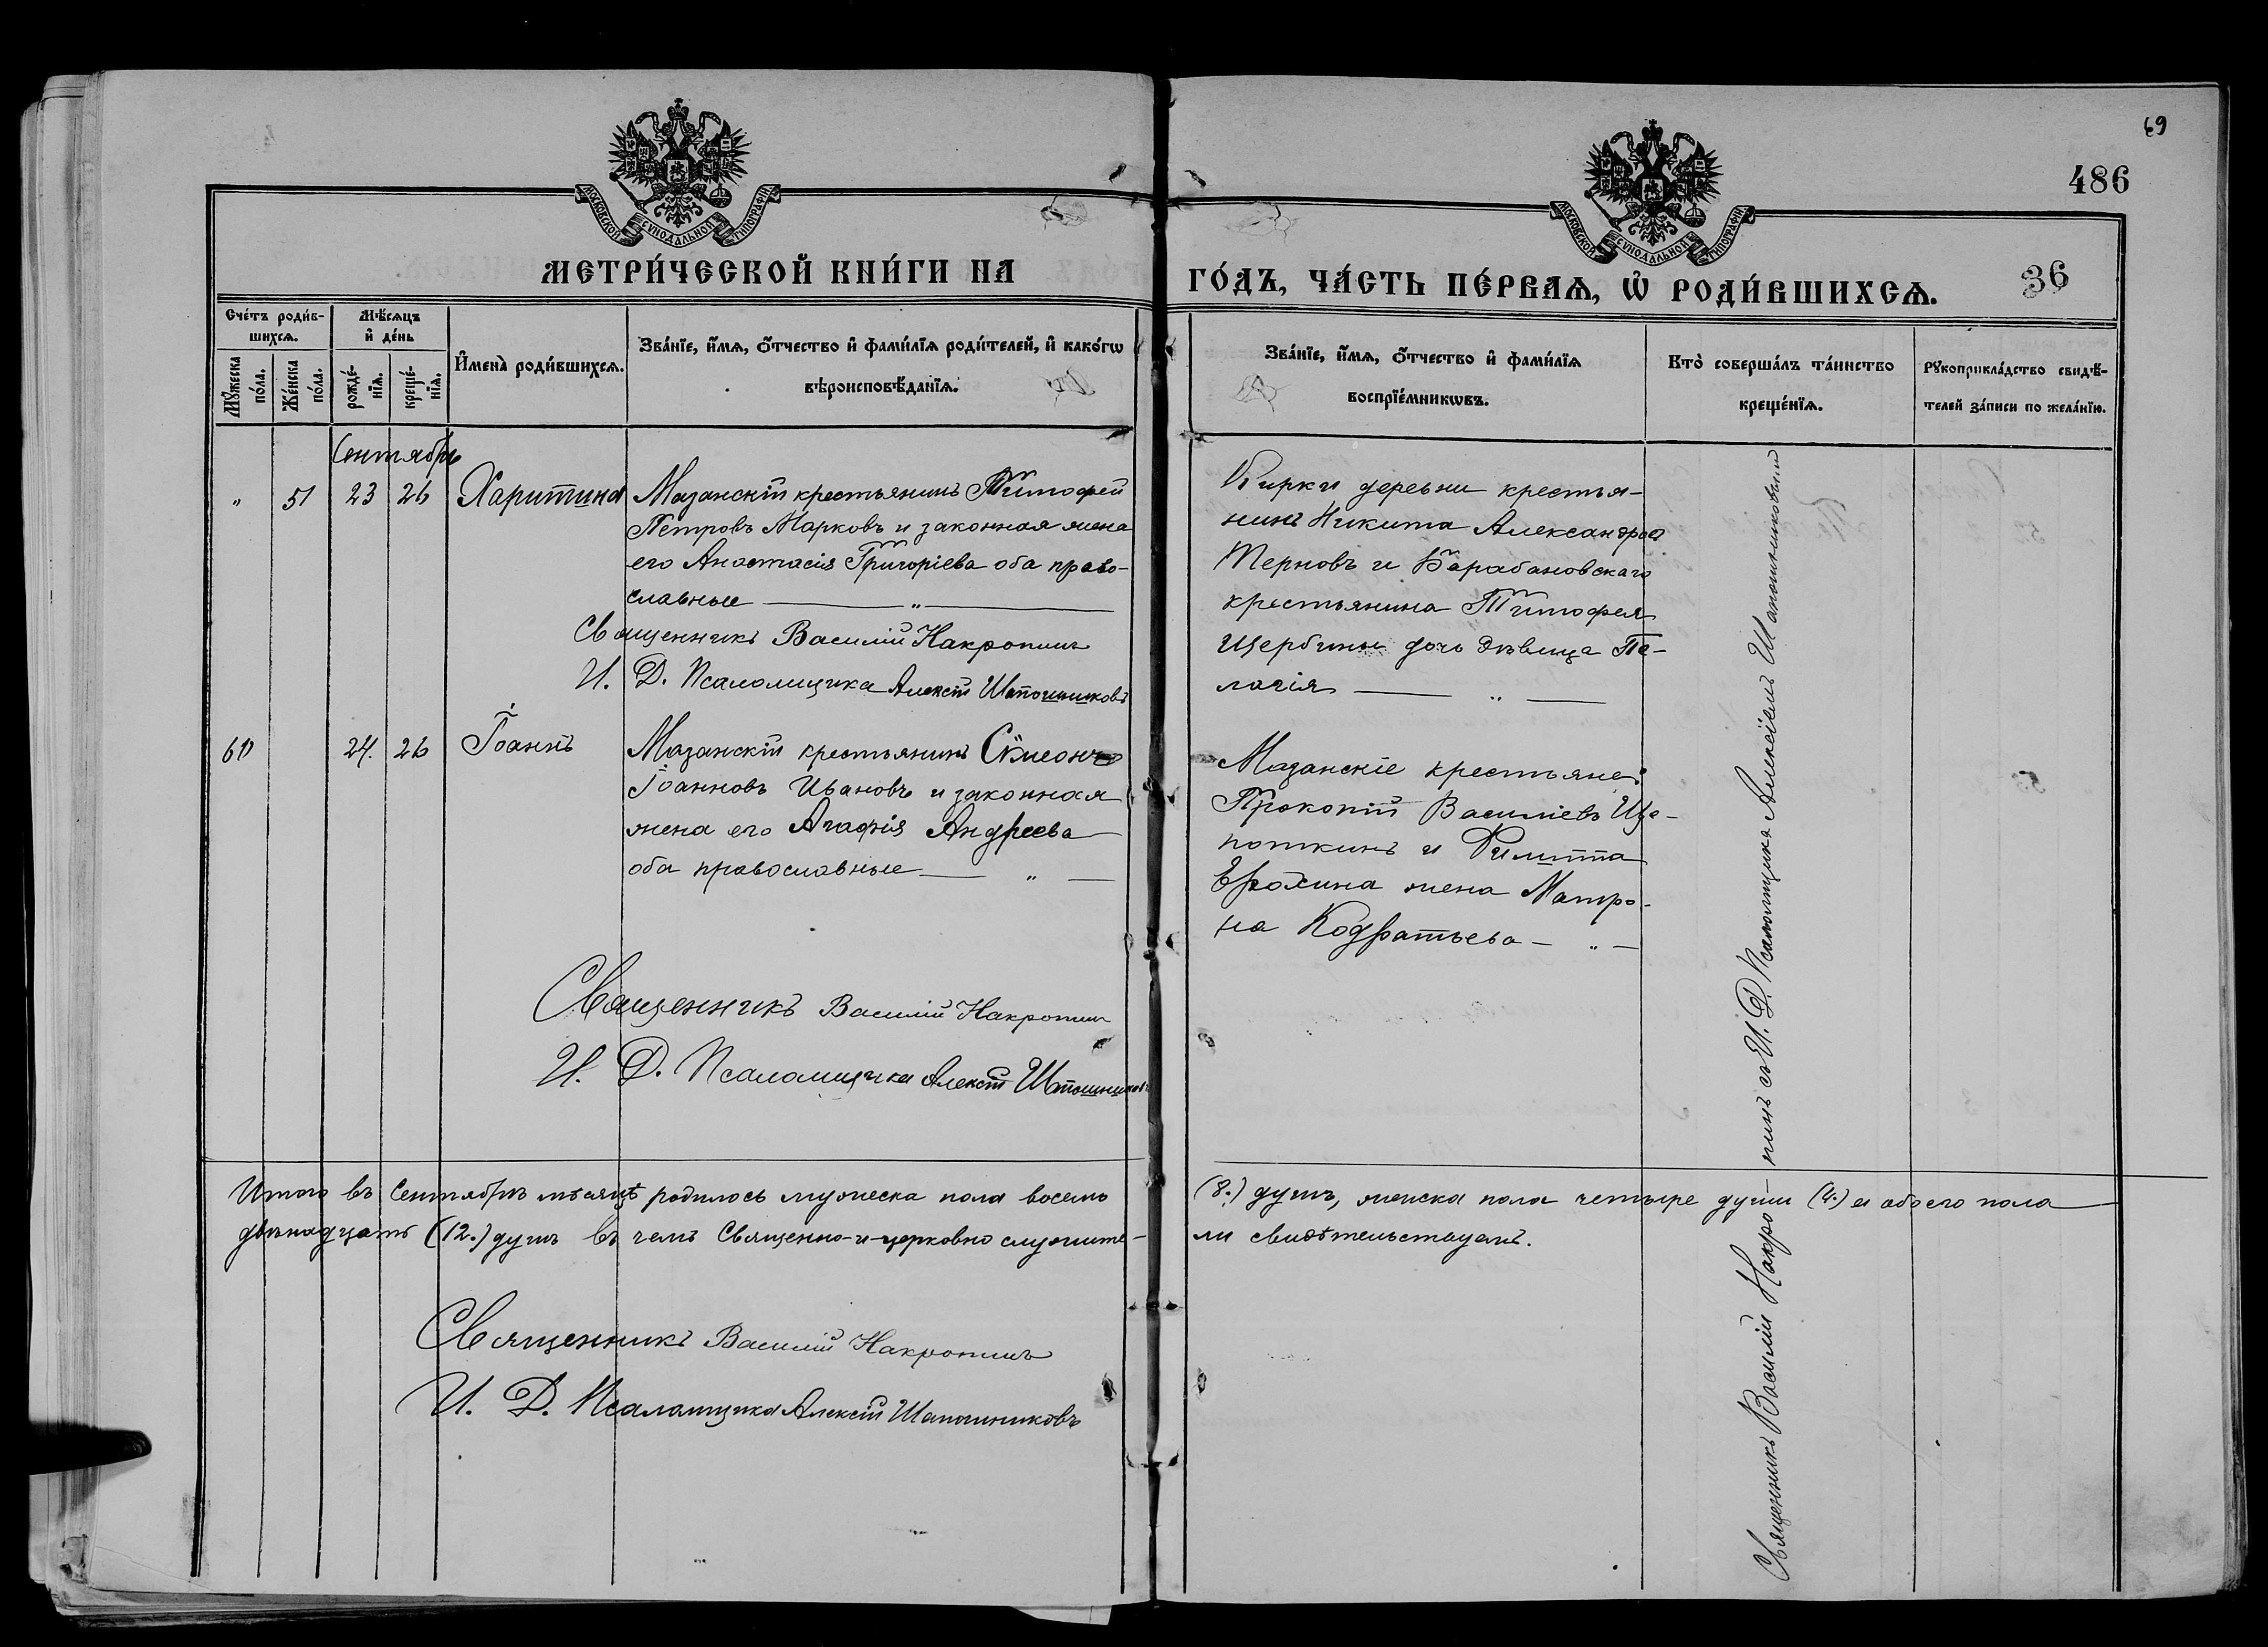 69
486
36
МОСКОВСКОЙ СѴНОДАЛЬНОЙ ТИПОГРАФІИ
МОСКОВСКОЙ СѴНОДАЛЬНОЙ ТИПОГРАФІИ
МЕТРИ́ЧЕСКОЙ КНИ́ГИ НА
ГО́ДЪ, ЧА́СТЬ ПЕ́РВАѦ, Ѡ҆ РОДИ́ВШИХСѦ.
Сче́тъ роди́в-
шихсѧ.
Мѣ́сѧцъ
и҆ де́нь
Мꙋ́жеска
по́ла.
Же́нска
по́ла.
рожде́-
нїѧ.
креще́-
нїѧ.
И҆мена̀ роди́вшихсѧ.
Зва́нїе, и҆́мѧ, ѻ҆́тчество и҆ фами́лїѧ роди́телей, и҆ како́гѡ
вѣроисповѣ́данїѧ.
Зва́нїе, и҆́мѧ, ѻ҆́тчество и҆ фами́лїѧ
воспрїе́мникѡвъ.
Кто̀ соверша́лъ та́инство
креще́нїѧ.
Рꙋкоприкла́дство свидѣ́-
телей за́писи по жела́нїю.
Сентябрь
" 51 23 26 Харитина
Мазанскій крестьянинъ Тимофей
Петровъ Марковъ и законная жена
его Анастасія Григоріева оба право-
славные — " —
Священникъ Василій Накропинъ
И. Д. Псаломщика Алексій Шапошниковъ
Кирки деревни крестья-
нинъ Никита Александров
Терновъ и Барабановскаго
крестьянина Тимофея
Щербины дочь дѣвица Пе-
лагія — " —
60 24. 26 Іоаннъ
Мазанскій крестьянинъ Симеонъ
Іоанновъ Ивановъ и законная
жена его Агафія Андреева
оба православные — " —
Мазанскіе крестьяне:
Прокопій Василіевъ Ще-
поткинъ и Филиппа
Ерохина жена Матро-
на Кодратьева — " —
Священникъ Василій Накропин
И. Д. Псаломщика Алексій Шапошников
Итого въ Сентябрѣ мѣсяцѣ родилось мужеска пола восемь (8.) душъ, женска пола четыре души (4.) а обоего пола
двѣнадцать (12.) душъ въ чемъ Священно-и-церковно служите- ли свидѣтельствуемъ.
Священникъ Василій Накропинъ
И. Д. Псаломщика Алексій Шапошниковъ
Священникъ Василій Накропинъ съ И. Д. Псаломщика Алексіемъ Шапошниковымъ